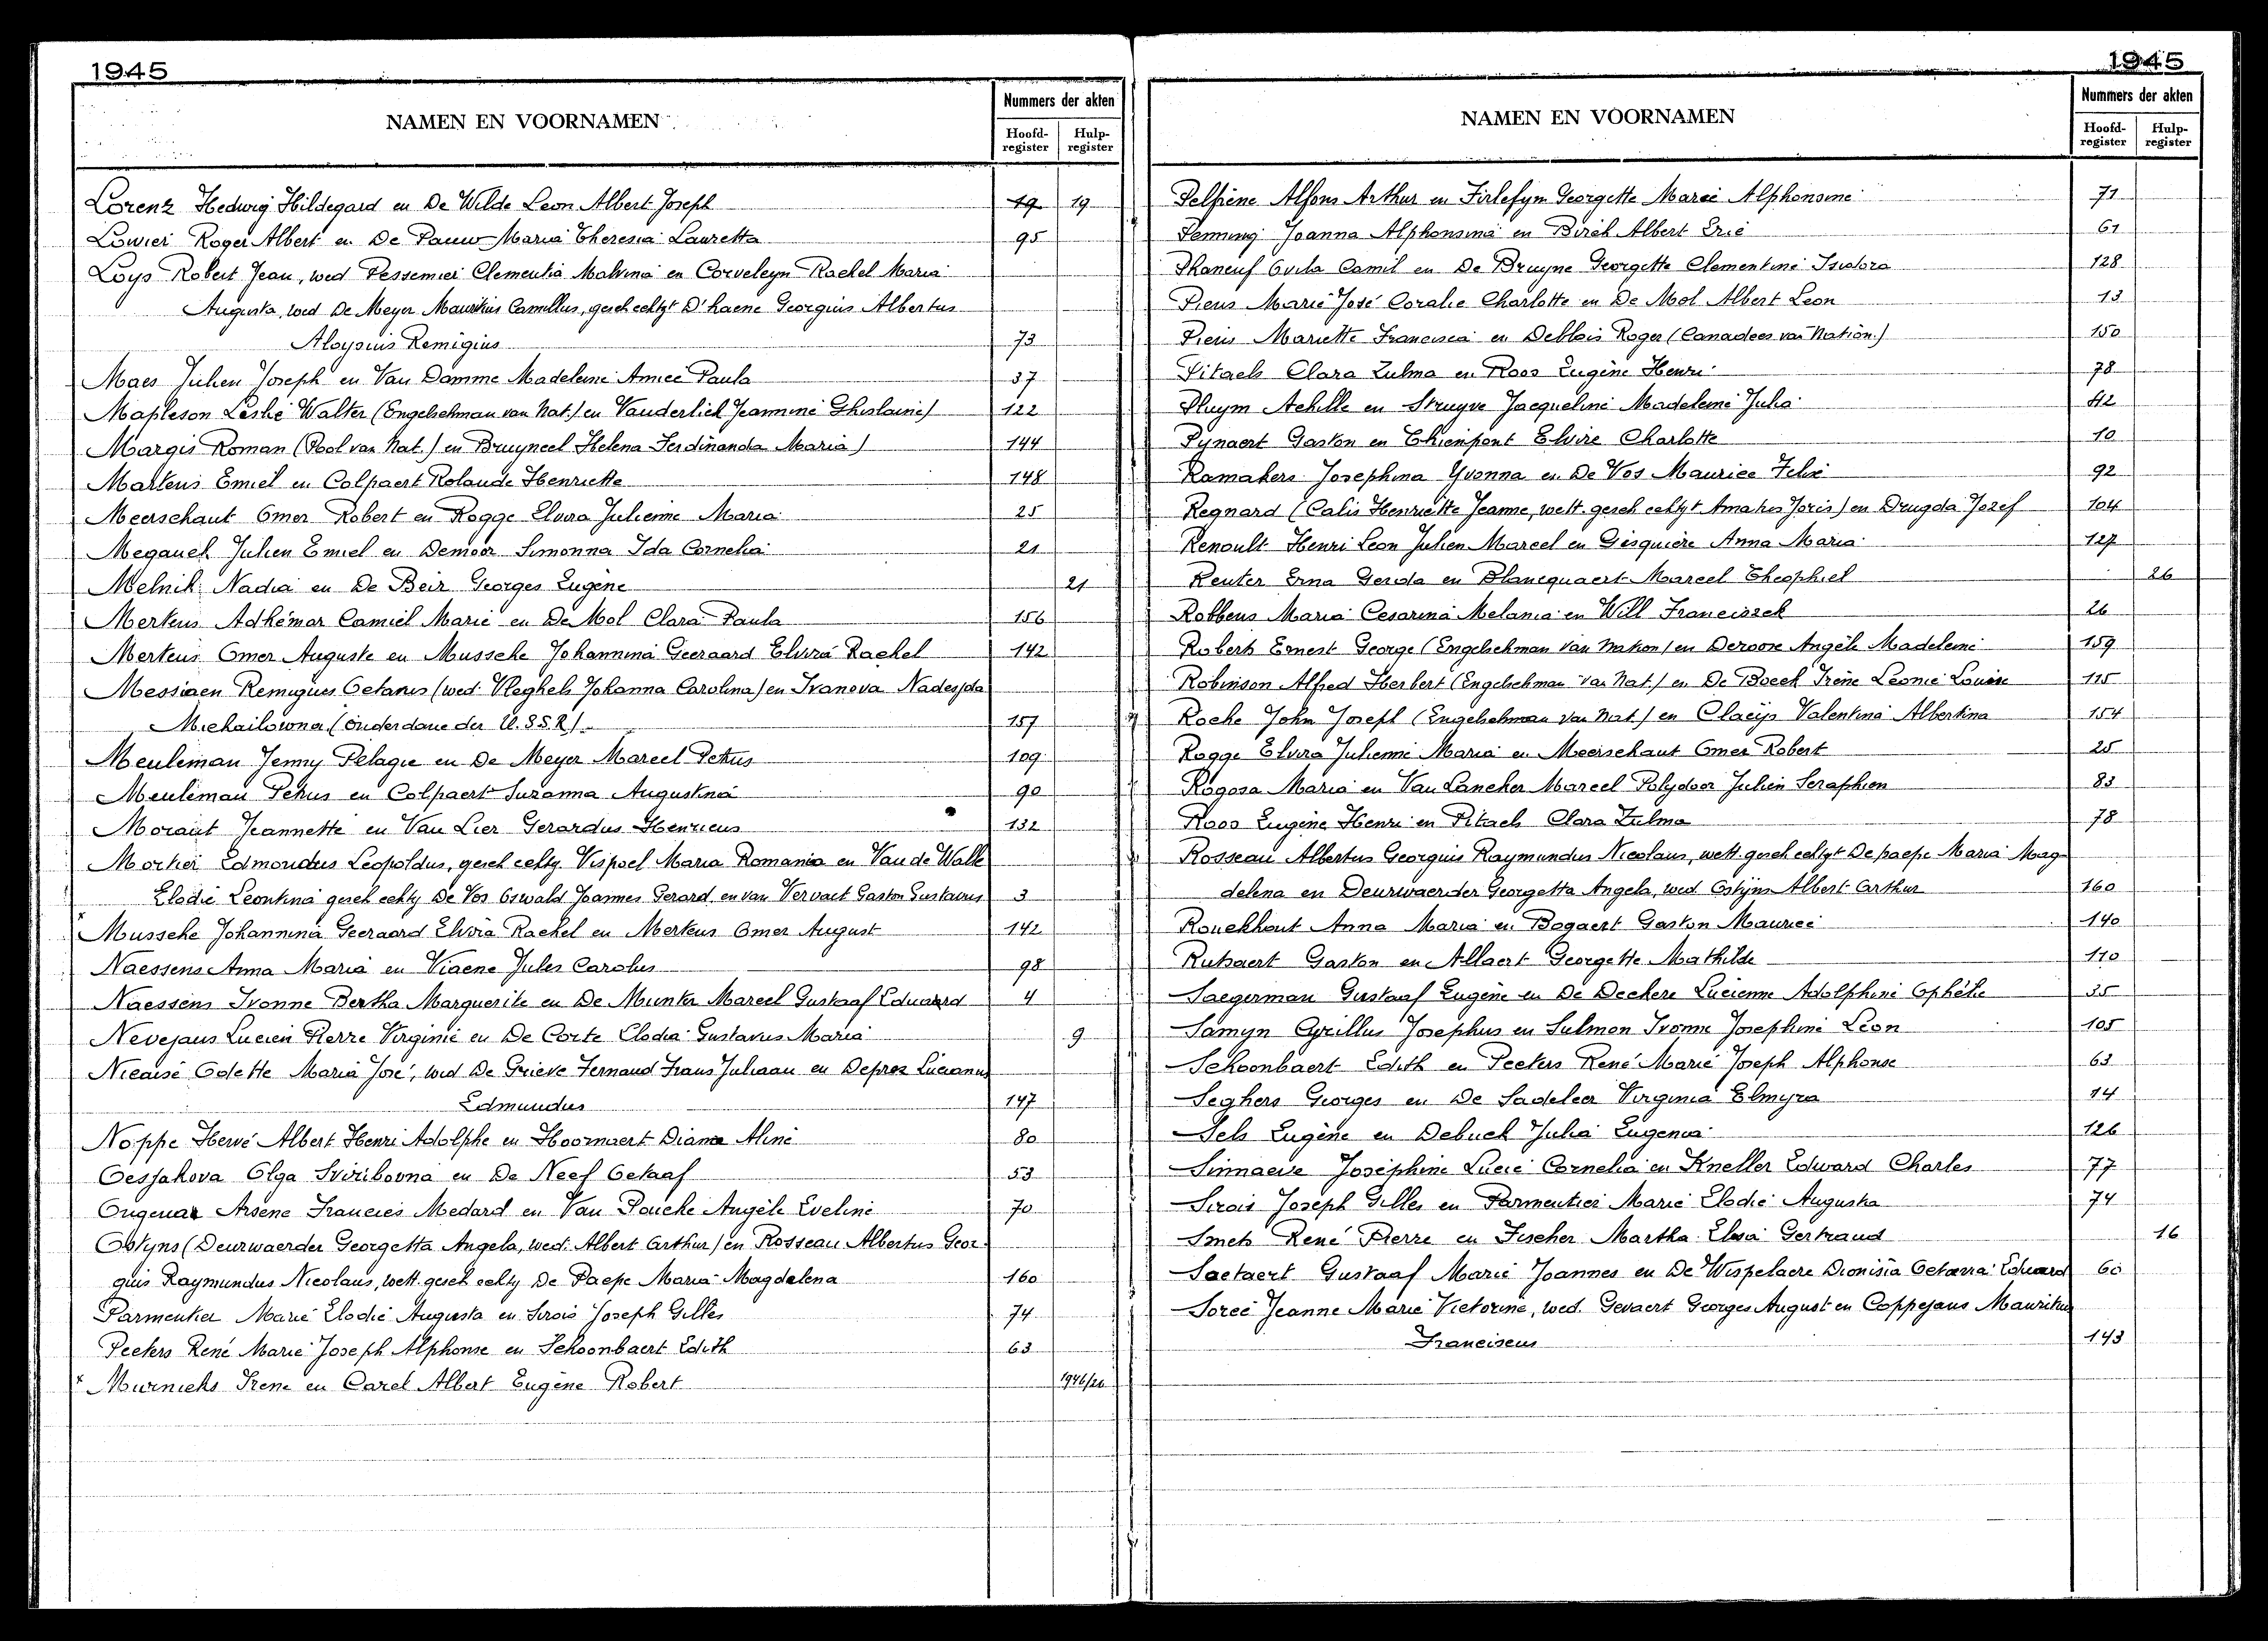 1945
NAMEN EN VOORNAMEN
Nummers der akten
Hoofd-register Hulp-register
Lorenz Hedwig Hildegard en De Wilde Leon Albert Joseph 19 19
Lowier Roger Albert en De Pauw Maria Theresia Lauretta 95
Loys Robert Jean, wed Pessemier Clementia Malvina en Corveleyn Rachel Maria
Augusta, wed De Meyer Mauritius Camillus, gesch echtgt D'haene Georgius Albertus
Aloysius Remigius 73
Maes Julien Joseph en Van Damme Madeleine Aimee Paula 37
Mapleson Leslie Walter (Engelschman van Nat.) en Vanderlick Jeannine Ghislaine) 122
Margis Roman (Pool van Nat.) en Bruyneel Helena Ferdinanda Maria) 144
Martens Emiel en Colpaert Rolande Henriette 148
Meerschaut Omer Robert en Rogge Elvira Julienne Maria 25
Meganck Julien Emiel en Demoor Simonna Ida Cornelia 21
Melnik Nadia en De Beir Georges Eugène 21
Mertens Adhémar Camiel Marie en De Mol Clara Paula 156
Mertens Omer Auguste en Mussche Johannina Geeraard Elvira Rachel 142
Messiaen Remigius Octavus (wed. Vleghels Johanna Carolina) en Ivanova Nadesjda
Michailowna (onderdane der U.S.S.R.) 157
Meuleman Jenny Pelagie en De Meyer Marcel Petrus 109
Meuleman Petrus en Colpaert Suzanna Augustina 90
Moraut Jeannette en Van Lier Gerardus Henricus 132
Mortier Edmondus Leopoldus, gesch echtg Vispoel Maria Romania en Van de Walle
Elodie Leontina gesch echtg De Vos Oswald Joannes Gerard, en van Vervaet Gaston Gustavus 3
Mussche Johannina Geeraard Elvira Rachel en Mertens Omer August 142
Naessens Anna Maria en Viaene Jules Carolus 98
Naessens Ivonne Bertha Marguerite en De Munter Marcel Gustaaf Eduard 4
Nevejans Lucien Pierre Virginie en De Corte Elodia Gustavus Maria 9
Nicaise Odette Maria José, wed De Grieve Fernand Frans Juliaan en Deprez Lucianus
Edmundus 147
Noppe Hervé Albert Henri Adolphe en Hoornaert Diana Aline 80
Oesjakova Olga Sviribovna en De Neef Octaaf 53
Ongenae Arsene Francies Medard en Van Poucke Angèle Eveline 70
Ostyns (Deurwaerder Georgetta Angela, wed. Albert Arthur) en Rosseau Albertus Geor-
gius Raymundus Nicolaus, wett. gesch echtg De Paepe Maria-Magdalena 160
Parmentier Marie Elodie Augusta en Sirois Joseph Gilles 74
Peeters René Marie Joseph Alphonse en Schoonbaert Edith 63
x Murnieks Irene en Carel Albert Eugène Robert 1946/26
1945
NAMEN EN VOORNAMEN
Nummers der akten
Hoofd-register Hulp-register
Pelfrène Alfons Arthur en Firlefyn Georgette Marie Alphonsine 71
Penning Joanna Alphonsina en Birch Albert Eric 61
Phaneuf Ovila Camil en De Bruyne Georgette Clementine Isidora 128
Piens Marie José Coralie Charlotte en De Mol Albert Leon 13
Piens Mariette Francisca en Deblois Roger (Canadees van Nation.) 150
Pitaels Clara Zulma en Roos Eugène Henri 78
Pluym Achille en Struyve Jacqueline Madeleine Julia 42
Pynaert Gaston en Thienpont Elvire Charlotte 10
Ramakers Josephina Yvonna en De Vos Maurice Felix 92
Regnard (Calis Henriette Jeanne, wett. gesch echtgt Amatus Joris) en Drugda Jozef 104
Renoult Henri Leon Julien Marcel en Gisquière Anna Maria 127
Reuter Erna Gerda en Blancquaert Marcel Theophiel 26
Robbens Maria Cesarina Melania en Will Franciszek 26
Roberts Ernest George (Engelschman van Nation) en Deroose Angèle Madeleine 159
Robinson Alfred Herbert (Engelschman van Nat.) en De Boeck Irène Léonie Louise 115
Roche John Joseph (Engelschman van Nat.) en Claeys Valentina Albertina 154
Rogge Elvira Julienne Maria en Meerschaut Omer Robert 25
Rogosa Maria en Van Lancker Marcel Polydoor Julien Seraphien 83
Roos Eugène Henri en Pitaels Clara Zulma 78
Rosseau Albertus Georgius Raymundus Nicolaus, wett. gesch echtgt De paepe Maria Mag-
delena en Deurwaerder Georgetta Angela, wed. Ostyns Albert Arthur 160
Rouckhout Anna Maria en Bogaert Gaston Maurice 140
Rutsaert Gaston en Allaert Georgette Mathilde 110
Saegerman Gustaaf Eugène en De Deckere Lucienne Adolphine Ophélie 35
Samyn Cyrillus Josephus en Sulmon Ivonne Josephine Léon 105
Schoonbaert Edith en Peeters René Marie Joseph Alphonse 63
Seghers Georges en De Sadeleer Virginia Elmyra 14
Sels Eugène en Debuck Julia Eugenia 126
Sinnaeve Joséphine Lucie Cornelia en Kneller Edward Charles 77
Sirois Joseph Gilles en Parmentier Marie Elodie Augusta 74
Smets René Pierre en Fischer Martha Elsa Gertraud 16
Soetaert Gustaaf Marie Joannes en De Wispelaere Dionisia Octavia Eduard 60
Soree Jeanne Marie Victorine, wed. Gevaert Georges August en Coppejans Mauritius
Franciscus 143